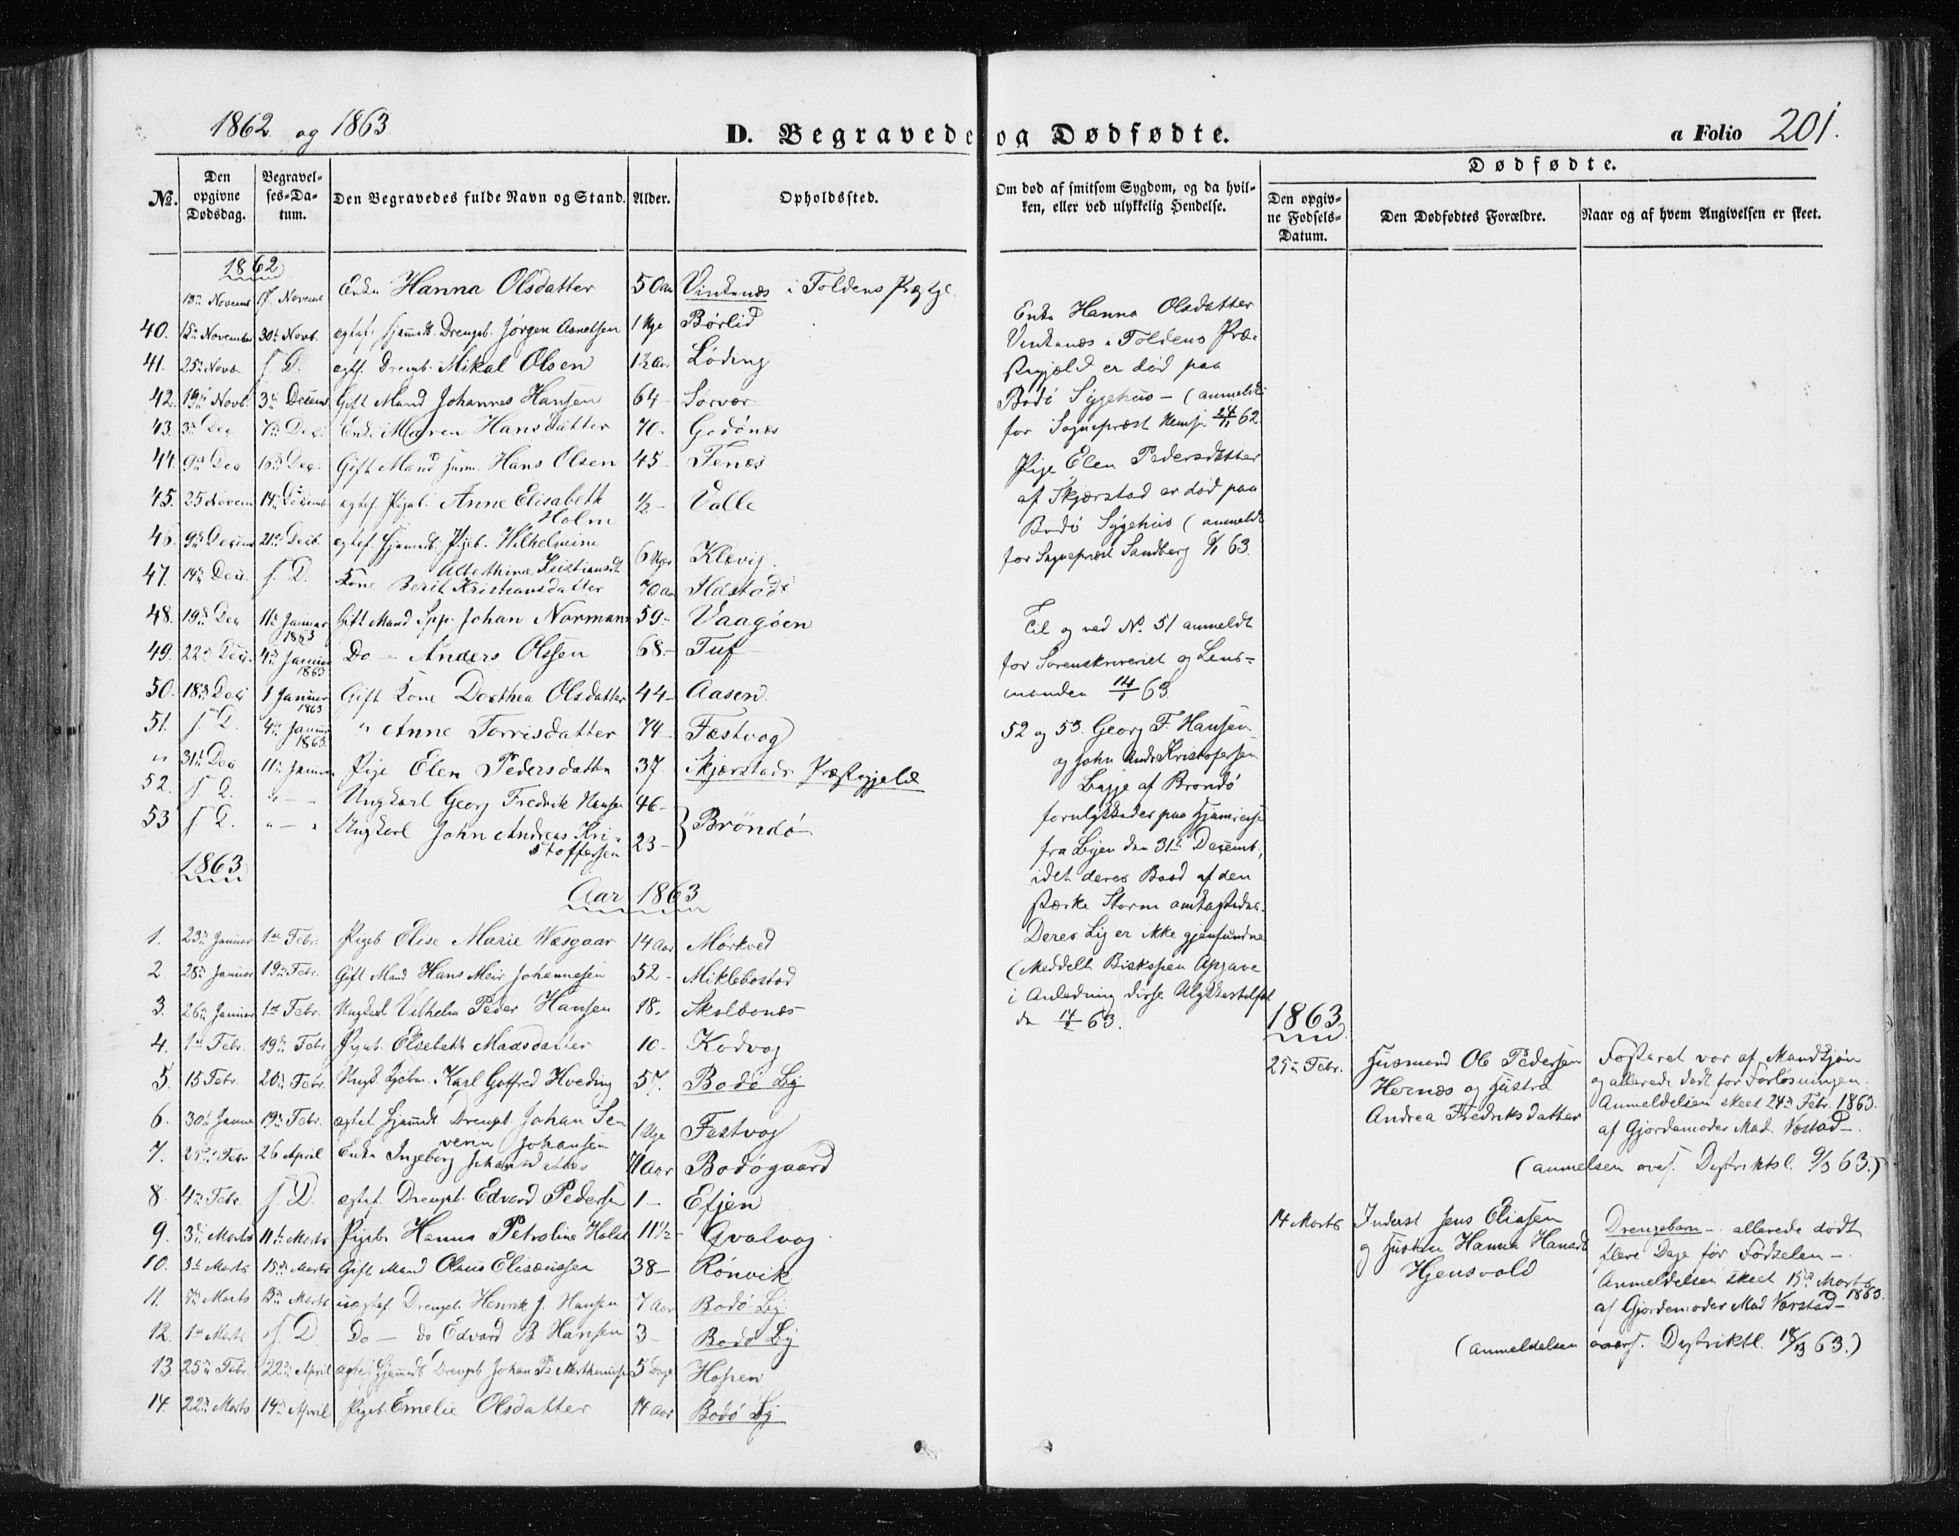 1862 og 1863
D. Begravede og Dødfødte.
a Folio 201.
No.
Den opgivne Dødsdag.
Begravelses-Datum.
Den Begravedes fulde Navn og Stand.
Alder.
Opholdssted.
Om død af smitsom Sygdom, og da hvilken, eller ved ulykkelig Hendelse.
Dødfødte.
Den opgivne Fødsels-Datum.
Den Dødfødtes Forældre.
Naar og af hvem Angivelsen er skeet.
1862
Enke Hanna Olsdatter 50 Aar Vinkenæs i Foldens
40. 15de November 30te Novb. Drengeb. Jørgen 1 Uge Børlid
41. 25de Novb. s. D. ægtef. Drengb. Mikal Olsen Løding
42. 19de Novb. 3de Decemb Gift Mand Johannes Hansen 64 - Sørvær
43. 3de Dec 7de Dec. Enke Maren Hansdatter 70 - Godønes
44. 9de Dec Dec. Gift Mand Hans Olsen 45 - Fenes
45. 25 Novem 14de Decemb ægtef. Pigeb. Anne Elisabeth Holm ½ - Valle
46. 9de Decemb 21de Decb. ægtef. hjemmdb. Pigeb. Wilhelmine
Kristiansdt 6 Uger Kløvig
47. 14de Dec. s. D. Kone Berit Kristiansdatter 70 Aar Hostad
48. 19de Dec 11te Januar 1863 Gift Mand Johan Normans 59 - Vaagøen
49. 22de Dec. 4de Januar 1863 Do - Anders Olssen 68 - Tuf
50. 18de Dec 1 Januar 1863 Gift Kone Dorthea Olsdatter 44 - Aasen
51. s. D. 4de Januar 1863 " Anne Torrisdatter 74 - Fæstvog
" 31te Dec 11te Januar Pige Elen Pedersdatter 37 Skjærstads Præstegjeld
52. s. D. " - " Ungkarl Georg Fredrik Hansen 46 -
53 s. D. " - " Ungkarl John Andreas Kristoffersen 23 - } Brøndø
1863
Aar 1863
1. 23de Januar 1ste Febr. Pigeb Elise Marie Wæsgaar 14 Aar Mørkved
2. 28de Januar 19de Febr. Gift Mand Hans Meir Johannesen 52 - Miklebostad
3. 26de Januar 1ste Febr. Ungkarl Vilhelm Peder Hansen 18 - Skolbones
4. 1ste Febr. 19de Febr Pigeb. Elsebeth Madsdatter 10 - Kodvog
5. 15 Febr. 20de Febr. Karl Gotfred Hveding 57. Bodø By
6. 30te Januar 19de Febr. ægtef hjemmdt Drengb. Johan Severin Johansen 1 Uge Fæstvog
7. Febr 26 April Enke Ingeborg Johansdatter Aar Bodøgaard
8. 4de Febr. s. D. ægtef. Drengeb. Edvard Pedersen 1 - Efjen
9. 3de Marts 11te Marts Pigeb. Hanna Petroline Holst 11½ - Gvalvog
10. Marts 15de Marts Gift Mand Olaus Elisæussen 38 - Rønvik
11. Marts Marts uægtef. Drengeb. Henrik J. Hansen 7 Aar Bodø By
12. 1ste Marts s. D Do - do Edvard B Hansen 3 - Bodø By
13 25de Febr. 22de April ægtef. hjemmdt Drengeb Johan P. 5 Dage Hopen
14. 22de Marts 19de April Pigeb. Emelie Olsdatter 14 Aar Bodø By
Enke Hanna Olsdatter
Vinkenæs i Foldens Præ-
stegjeld er død paa
Bodø Sygehus - (anmeldt
for Sognepræst 24/11 62
Pige Elen Pedersdatter
af Skjærstad er død paa
Bodø Sygehus (anmeldt
for Sognepræst Sandberg 63.
Til og ved No. 51 anmeldt
for Sorenskriveriet og Lens-
manden 14/1 63.
52 og 53. Georg F. Hansen
og John Andr. Kristofersen
Begge af Brøndø
forulykkedes paa Hjemreise
fra Byen den 31te Decemb,
idet deres Baad af den
stærke Storm omkastedes.
Deres Lig er ikke gjenfundne
(Meddelt Biskopen Opgave
i Anledning disse Ulykkestilfæl
de 63.
1863
25de Febr. Husmand Ole Pedersen
Hernæs og Hustru
Andrea Fredriksdatter
Fosteret var af Mandkjøn
og allerede dødt før Forløsningen.
Anmeldelsen skeet 24de Febr. 1863.
af Gjordemoder Mad. Værstad -.
(anmelsen overs. Distriktsl. 9/3 63.)
14 Marts Inderst Jens Eliasen
og Hustru Hanna Hansdt
Hjensvold
Drengebarn - allerede dødt
flere Dage før Fødselen -.
Anmeldelsen skeet 15de Marts 1863.
af Gjordemoder Mad Værstad -
(anmeldelsen overs. Distriktl. 18/3 63.)